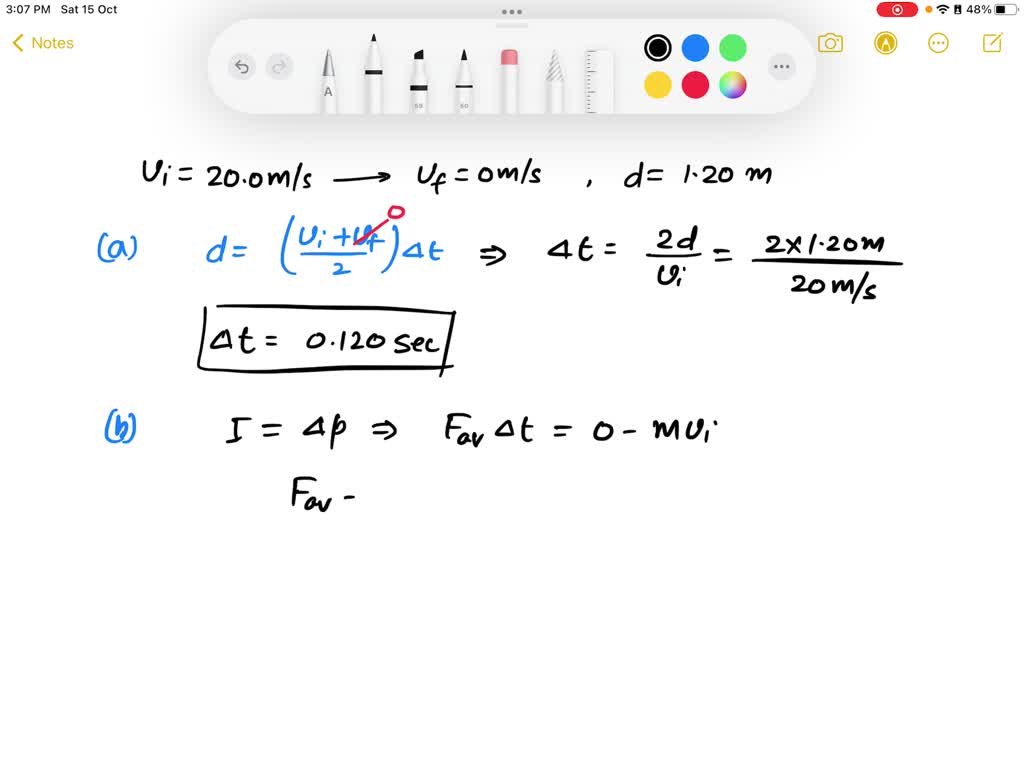 3:07 PM Sat 15 Oct 48%
Notes
A 50 50
Vi = 20.0 m/s → Vf = 0 m/s , d = 1.20 m
(a) d = ((Vi + Vf)/2) Δt ⇒ Δt = 2d/Vi = 2 × 1.20 m/20 m/s
0
Δt = 0.120 sec
(b) I = Δp ⇒ Fav Δt = 0 - mVi
Fav -